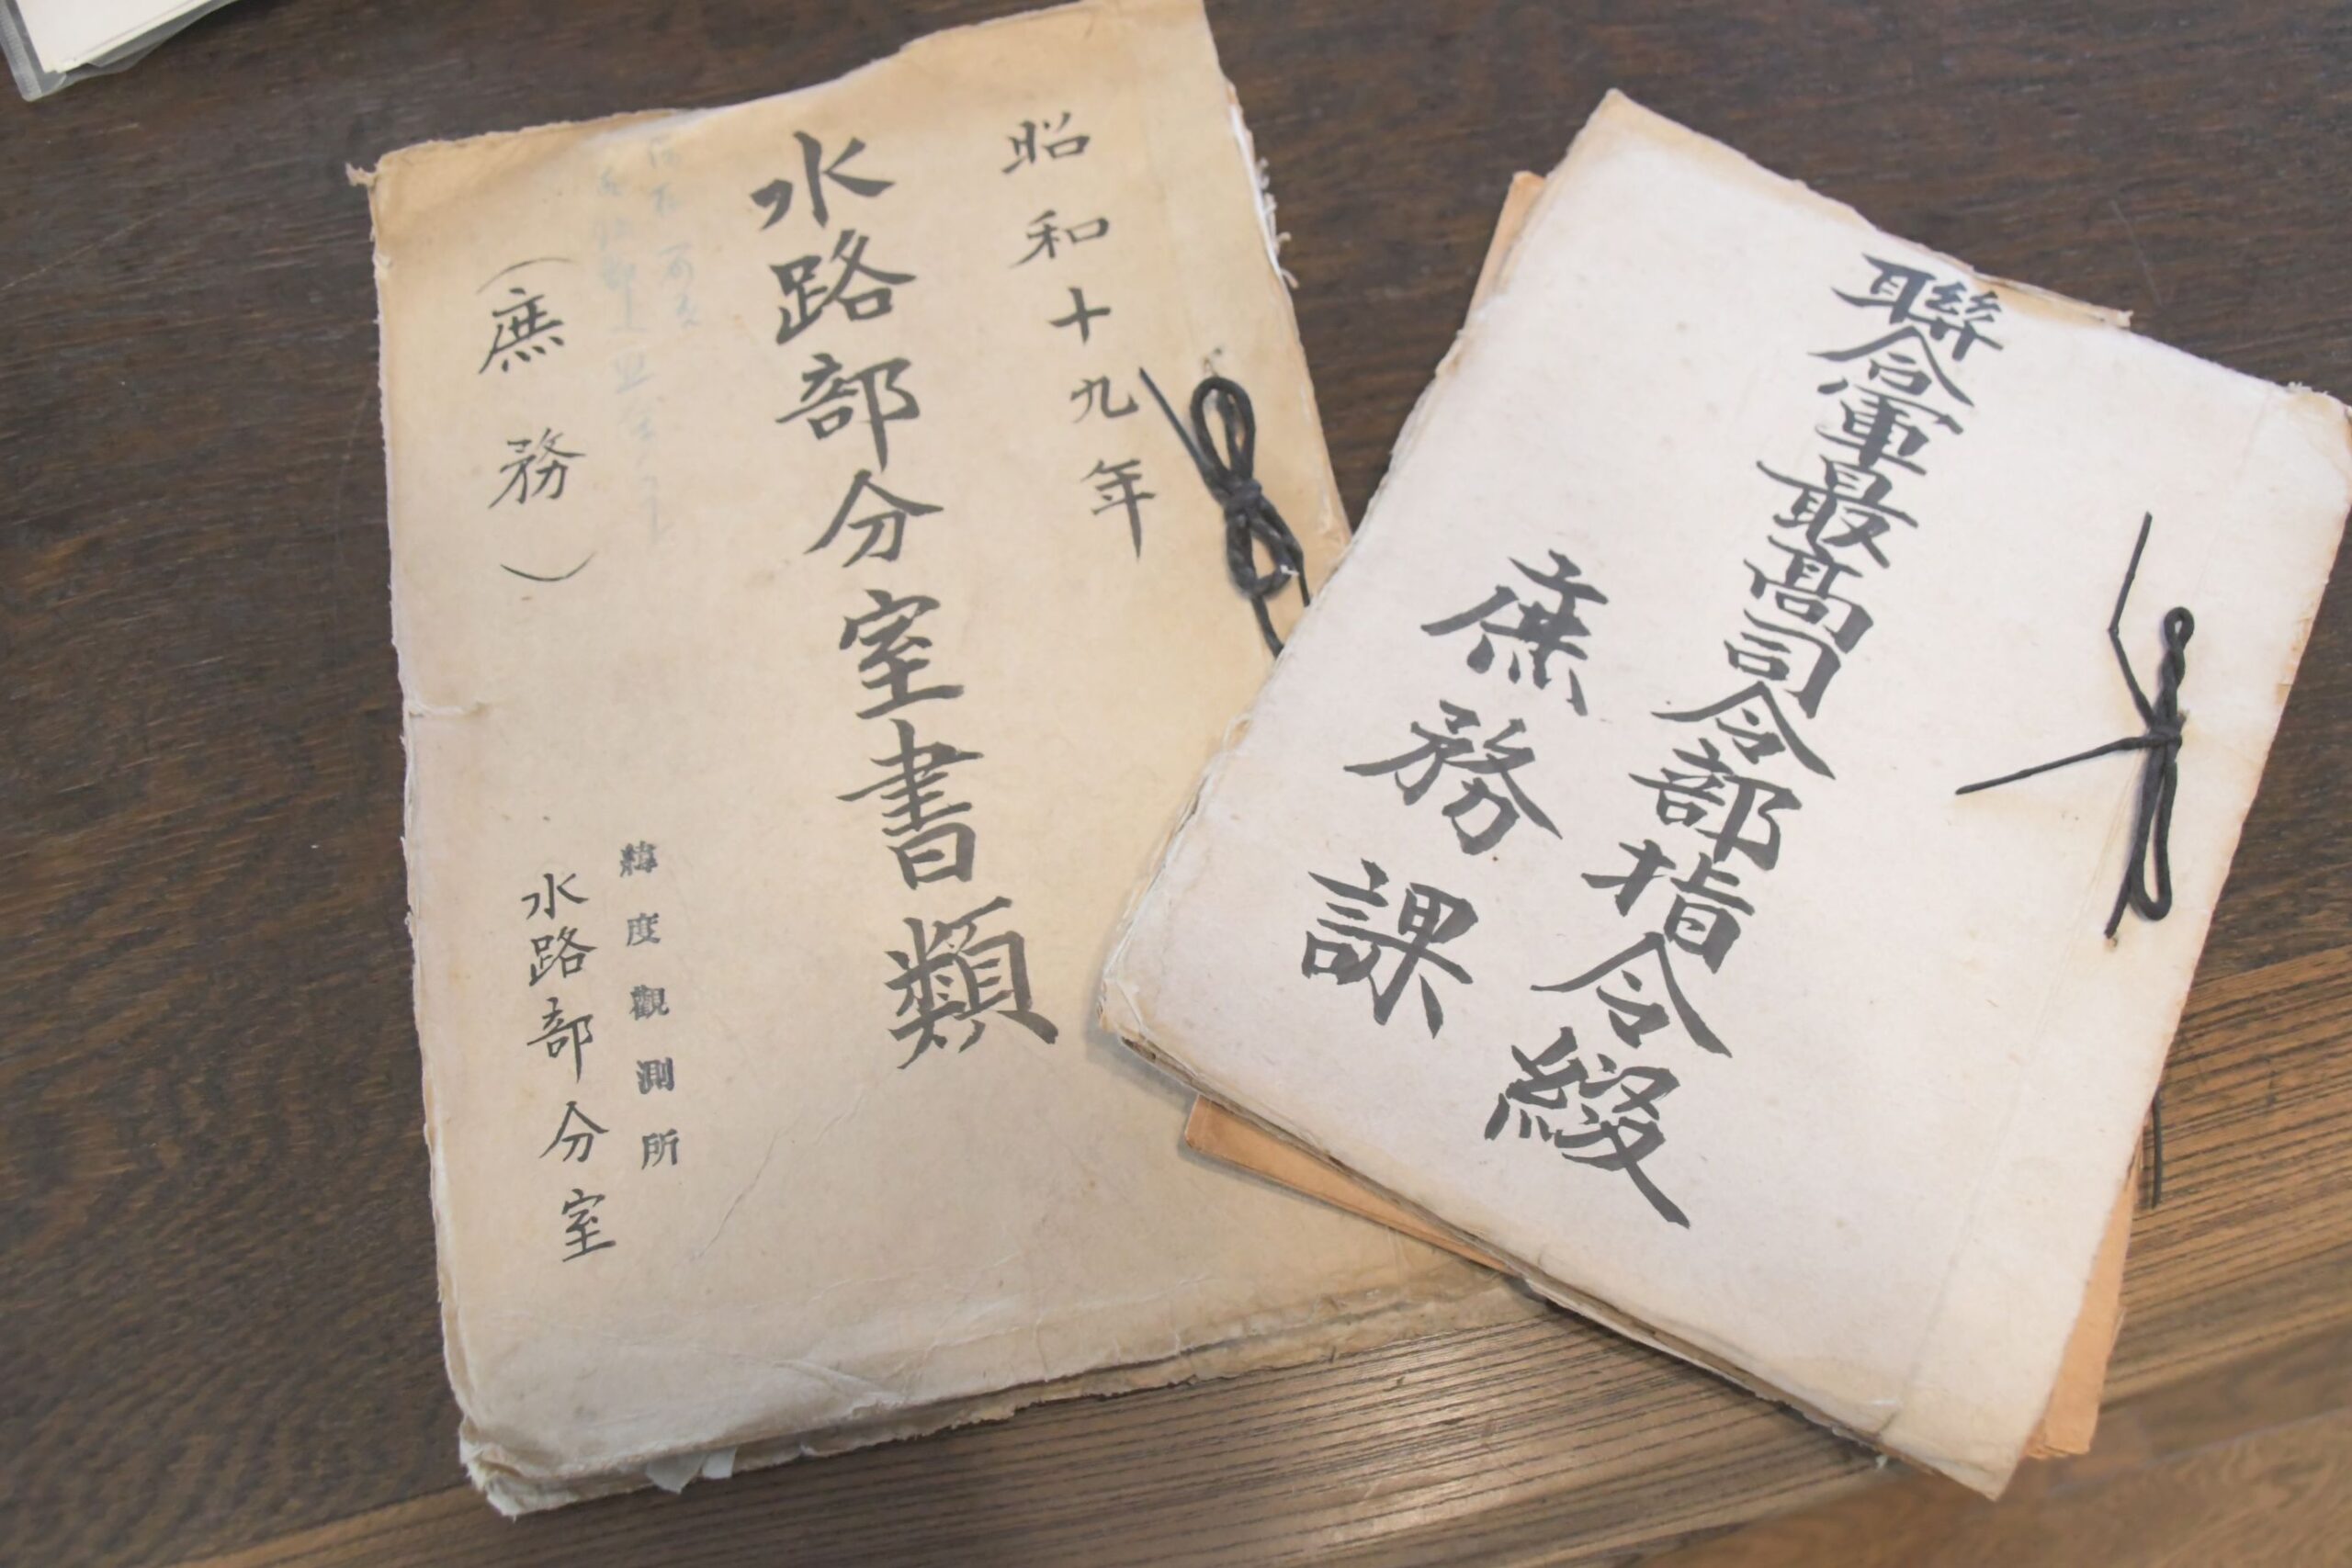 昭和十九年
水路部分室書類
（庶務）
緯度觀測所
水路部分室
聯合軍最高司令部指令綴
庶務課